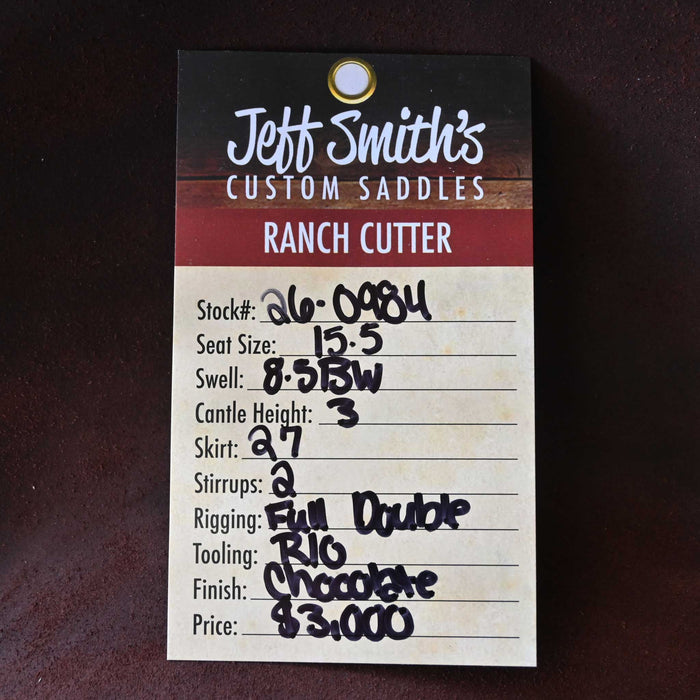 Jeff Smith's
CUSTOM SADDLES
RANCH CUTTER
Stock#: 26-0984
Seat Size: 15.5
Swell: 8.5BW
Cantle Height: 3
Skirt: 27
Stirrups: 2
Rigging: Full Double
Tooling: RIO
Finish: Chocolate
Price: $3,000